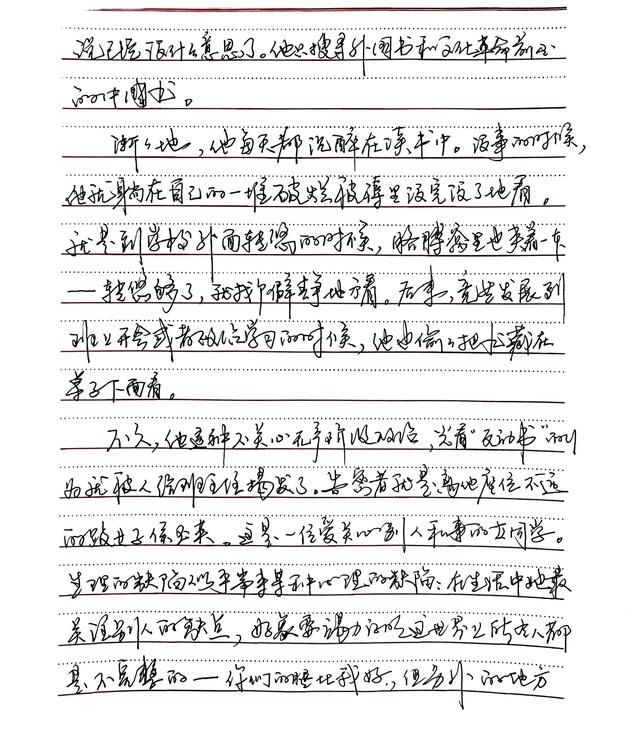 说已经没什么意思了。他只搜寻外国书和文化革命前出
的中国书。
渐渐地，他每天都沉醉在读书中。没事的时候，
他就躺在自己的一堆破烂被褥里没完没了地看。
就是到学校外面转悠的时候，胳膊窝里也夹着一本
——转悠够了，就找个僻静地方看。后来，竟然发展到
班上开会或者政治学习的时候，他也偷偷把书藏在
桌子下面看。
不久，他这种不关心无产阶级政治，光看“反动书”的行
为就被人给班主任揭发了。告密者就是离他座位不远
的跛女子侯玉英。这是一位爱关心别人私事的女同学。
生理的缺陷似乎带来某种心理的缺陷：在生活中她最
关注别人的缺点，好象要竭力证明这世界上所有人都
是不完整的——你们的腿比我好，但另外的地方